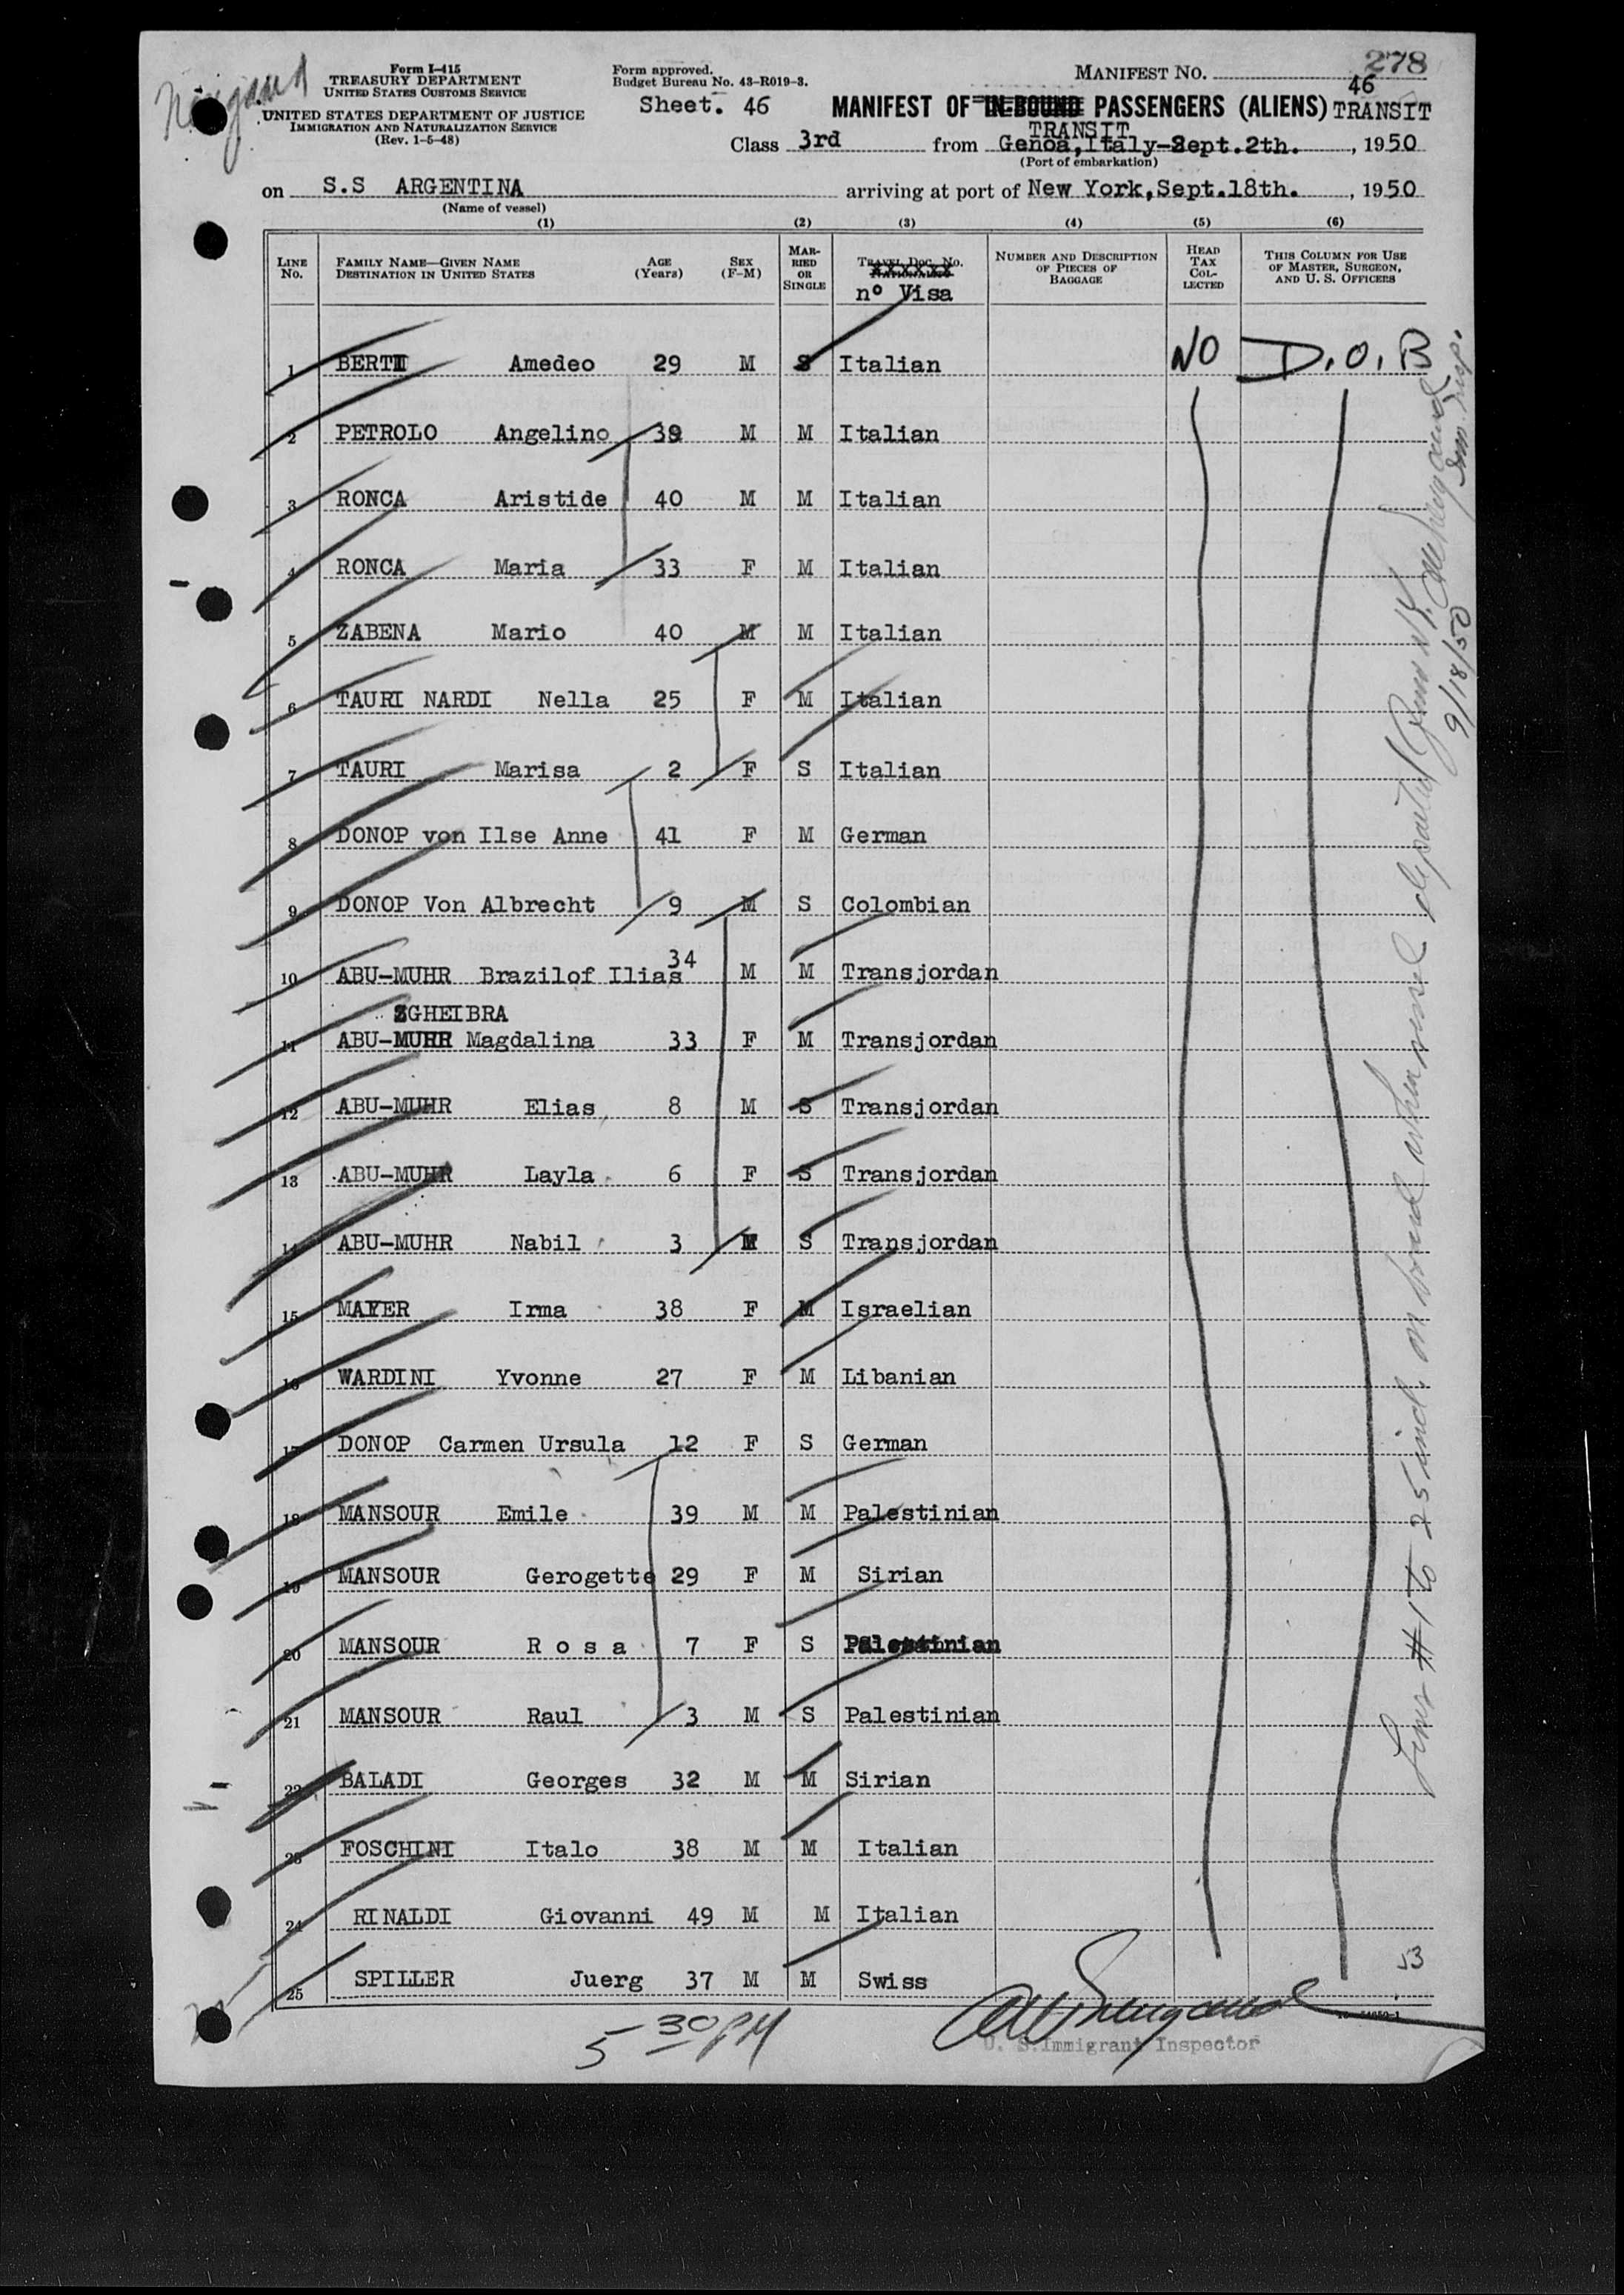 278
Form I-415
TREASURY DEPARTMENT
UNITED STATES CUSTOMS SERVICE
UNITED STATES DEPARTMENT OF JUSTICE
IMMIGRATION AND NATURALIZATION SERVICE
(Rev. 1-5-48)
Form approved.
Budget Bureau No. 43-R019-3.
Sheet. 46
MANIFEST NO. 46
MANIFEST OF IN-BOUND PASSENGERS (ALIENS) TRANSIT
TRANSIT
Class 3rd from Genoa,Italy-Sept.2th. , 1950
(Port of embarkation)
on S.S ARGENTINA arriving at port of New York,Sept.18th. , 1950
(Name of vessel)
(1) (2) (3) (4) (5) (6)
LINE No. FAMILY NAME—GIVEN NAME DESTINATION IN UNITED STATES AGE (Years) SEX (F-M) MARRIED OR SINGLE TRAVEL DOC. NO. nº Visa NUMBER AND DESCRIPTION OF PIECES OF BAGGAGE HEAD TAX COLLECTED THIS COLUMN FOR USE OF MASTER, SURGEON, AND U. S. OFFICERS
1 BERTI Amedeo 29 M S Italian NO D.O.B
2 PETROLO Angelino 39 M M Italian
3 RONCA Aristide 40 M M Italian
4 RONCA Maria 33 F M Italian
5 ZABENA Mario 40 M M Italian
6 TAURI NARDI Nella 25 F M Italian
7 TAURI Marisa 2 F S Italian
8 DONOP von Ilse Anne 41 F M German
9 DONOP Von Albrecht 9 M S Colombian
10 ABU-MUHR Brazilof Ilias 34 M M Transjordan
SGHEIBRA
11 ABU-MUHR Magdalina 33 F M Transjordan
12 ABU-MUHR Elias 8 M S Transjordan
13 ABU-MUHR Layla 6 F S Transjordan
14 ABU-MUHR Nabil 3 M S Transjordan
15 MAYER Irma 38 F M Israelian
16 WARDINI Yvonne 27 F M Libanian
17 DONOP Carmen Ursula 12 F S German
18 MANSOUR Emile 39 M M Palestinian
19 MANSOUR Gerogette 29 F M Sirian
20 MANSOUR Rosa 7 F S Palestinian
21 MANSOUR Raul 3 M S Palestinian
22 BALADI Georges 32 M M Sirian
23 FOSCHINI Italo 38 M M Italian
24 RINALDI Giovanni 49 M M Italian
25 SPILLER Juerg 37 M M Swiss
53
5 30 PM
U. S. Immigrant Inspector
Lines # 1 to 25 incl. on board when vessel departed from N.Y.
Imm. Insp.
9/18/50